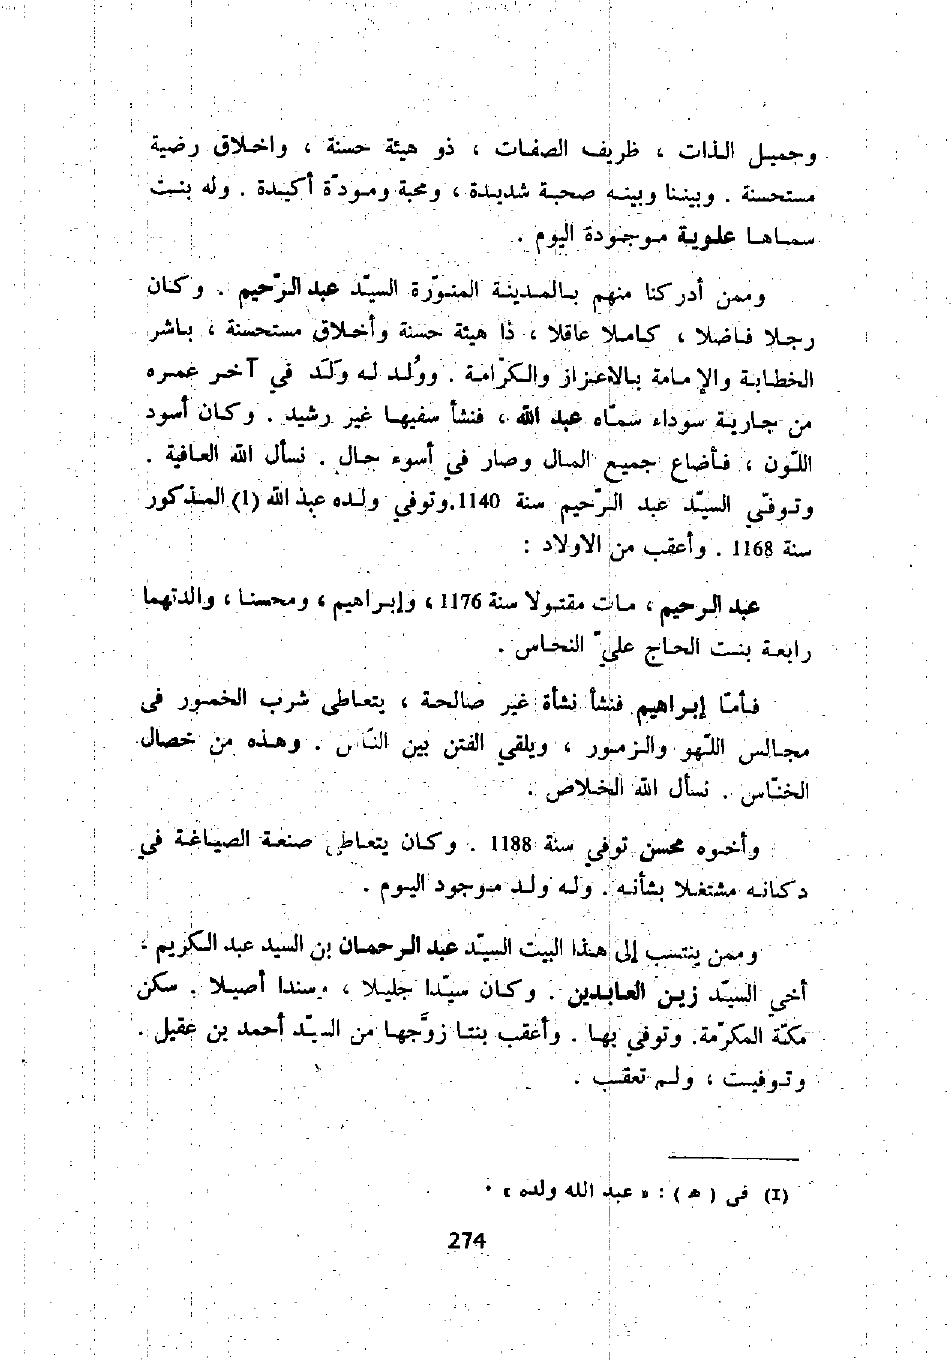 وجميل الذات ، ظريف الصفات ، ذو هيئة حسنة ، واخلاق رضية
مستحسنة . وبيننا وبينه صحبة شديدة ، ومحبة ومودّة أكيدة . وله بنت
سماها علوية موجودة اليوم .
وممن أدركنا منهم بالمدينة المنوّرة السيّد عبد الرّحيم . وكان
رجلا فاضلا ، كاملا عاقلا ، ذا هيئة حسنة وأخلاق مستحسنة ، باشر
الخطابة والإمامة بالاعزاز والكرامة . ووُلد له ولَد في آخر عمره
من جارية سوداء سمّاه عبد الله ، فنشأ سفيها غير رشيد . وكان أسود
اللّون ، فأضاع جميع المال وصار في أسوء حال . نسأل الله العافية .
وتوفّي السيّد عبد الرّحيم سنة 1140.وتوفي ولده عبد الله (1) المذكور
سنة 1168 . وأعقب من الاولاد :
عبد الرحيم ، مات مقتولا سنة 1176 ، وإبراهيم ، ومحسنا ، والدتهما
رابعة بنت الحاج عليّ النحاس .
فأمّا إبراهيم فنشأ نشأة غير صالحة ، يتعاطى شرب الخمور فى
مجالس اللّهو والزمور ، ويلقي الفتن بين النّاس . وهذه من خصال
الخنّاس . نسأل الله الخلاص .
وأخوه محسن توفي سنة 1188 . وكان يتعاطى صنعة الصياغة في
دكانه مشتغلا بشأنه . وله ولد موجود اليوم .
وممن ينتسب إلى هذا البيت السيّد عبد الرحمان بن السيد عبد الكريم ،
أخي السيّد زين العابدين . وكان سيّدا جليلا ، سندا أصيلا . سكن
مكّة المكرّمة. وتوفي بها . وأعقب بنتا زوَّجها من السيّد أحمد بن عقيل .
وتوفيت ، ولم تعقب .
(1) فى ( ﻫ ) : « عبد الله ولده » .
274